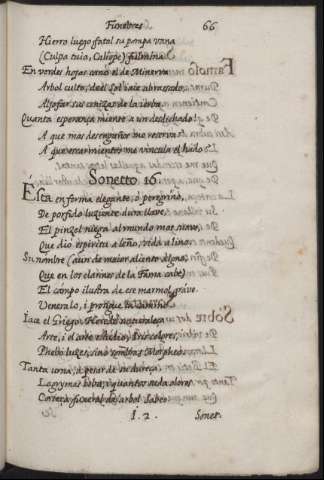 Funebres 66
Hierro luego fatal su pompa vana
(Culpa tuia, Caliope) fulmina
En verdes hojas como el de Minerva
Arbol culto, del Sol iace abrasado,
Aljofar sus cenizas de la ierba.
Quanta esperança miente a un desdichado!
A que mas desengaños me reserva
A que escarmientos me vincula el hado?
Sonetto 16
Esta en forma elegante, ó peregrino,
De porfido luziente dura llave,
El pinzel niega al mundo mas suave,
Que dio espiritu a leño, vida a lino.
Su nombre (aun de maior aliento digno,
Que en los clarines de la Fama cabe)
El campo ilustra de ese marmol grave.
Veneralo, i prosigue tu camino.
Iace el Griego. Heredó naturaleza
Arte, i el arte estudio, Iris colores,
Phebo luzes, sino sombras Morpheo.
Tanta urna, a pesar de su dureza
Lagrymas beba, i quantos suda olores
Corteza funeral de arbol Sabeo.
I. 2. Sonet.